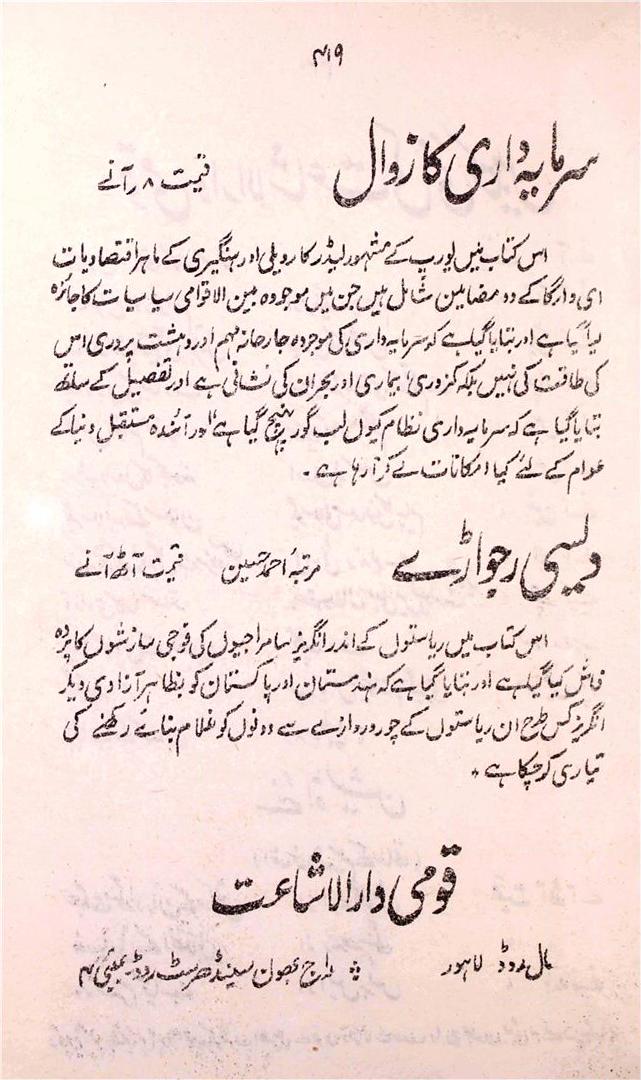 ۴۱۹
سرمایہ داری کا زوال قیمت ۸ر آنے
اس کتاب میں یورپ کے مشہور لیڈر کارویلی اور ہنگیری کے ماہر اقتصادیات
ای وارگا کے دو مضامین شامل ہیں جن میں موجودہ بین الاقوامی سیاسیات کا جائزہ
لیا گیا ہے اور بتایا گیا ہے کہ سرمایہ داری کی موجودہ جارحانہ مہم اور دہشت پروری اس
کی طاقت کی نہیں بلکہ کمزوری، بیماری اور بحران کی نشانی ہے اور تفصیل کے ساتھ
بتایا گیا ہے کہ سرمایہ داری نظام کیوں لب گور پہنچ گیا ہے اور آئندہ مستقبل دنیا کے
عوام کے لئے کیا امکانات لے کر آ رہا ہے ۔
دیسی رجواڑے مرتبہ احمد حسین قیمت آٹھ آنے
اس کتاب میں ریاستوں کے اندر انگریز سامراجیوں کی فوجی سازشوں کا پردہ
فاش کیا گیا ہے اور بتایا گیا ہے کہ ہندستان اور پاکستان کو بظاہر آزادی دیکر
انگریز کس طرح ان ریاستوں کے چور دروازے سے دونوں کو غلام بنائے رکھنے کی
تیاری کر چکا ہے ۔
قومی دار الاشاعت
مال روڈ لاہور ؞ راج بھون سینڈھرسٹ روڈ بمبئی ۴